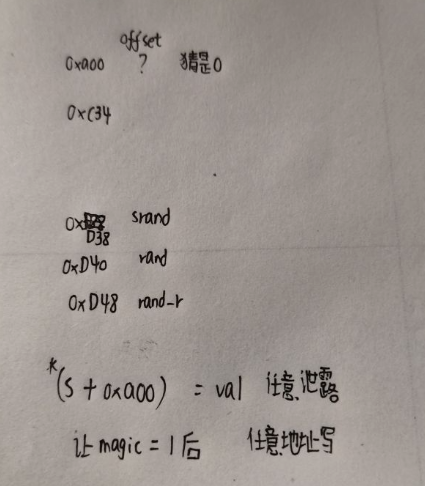 offset
0xa00 ? 猜是0
0xC34
0x D38 srand
0xD40 rand
0xD48 rand-r
*(S + 0xa00) = val 任意泄露
让 magic = 1 后 任意地址写